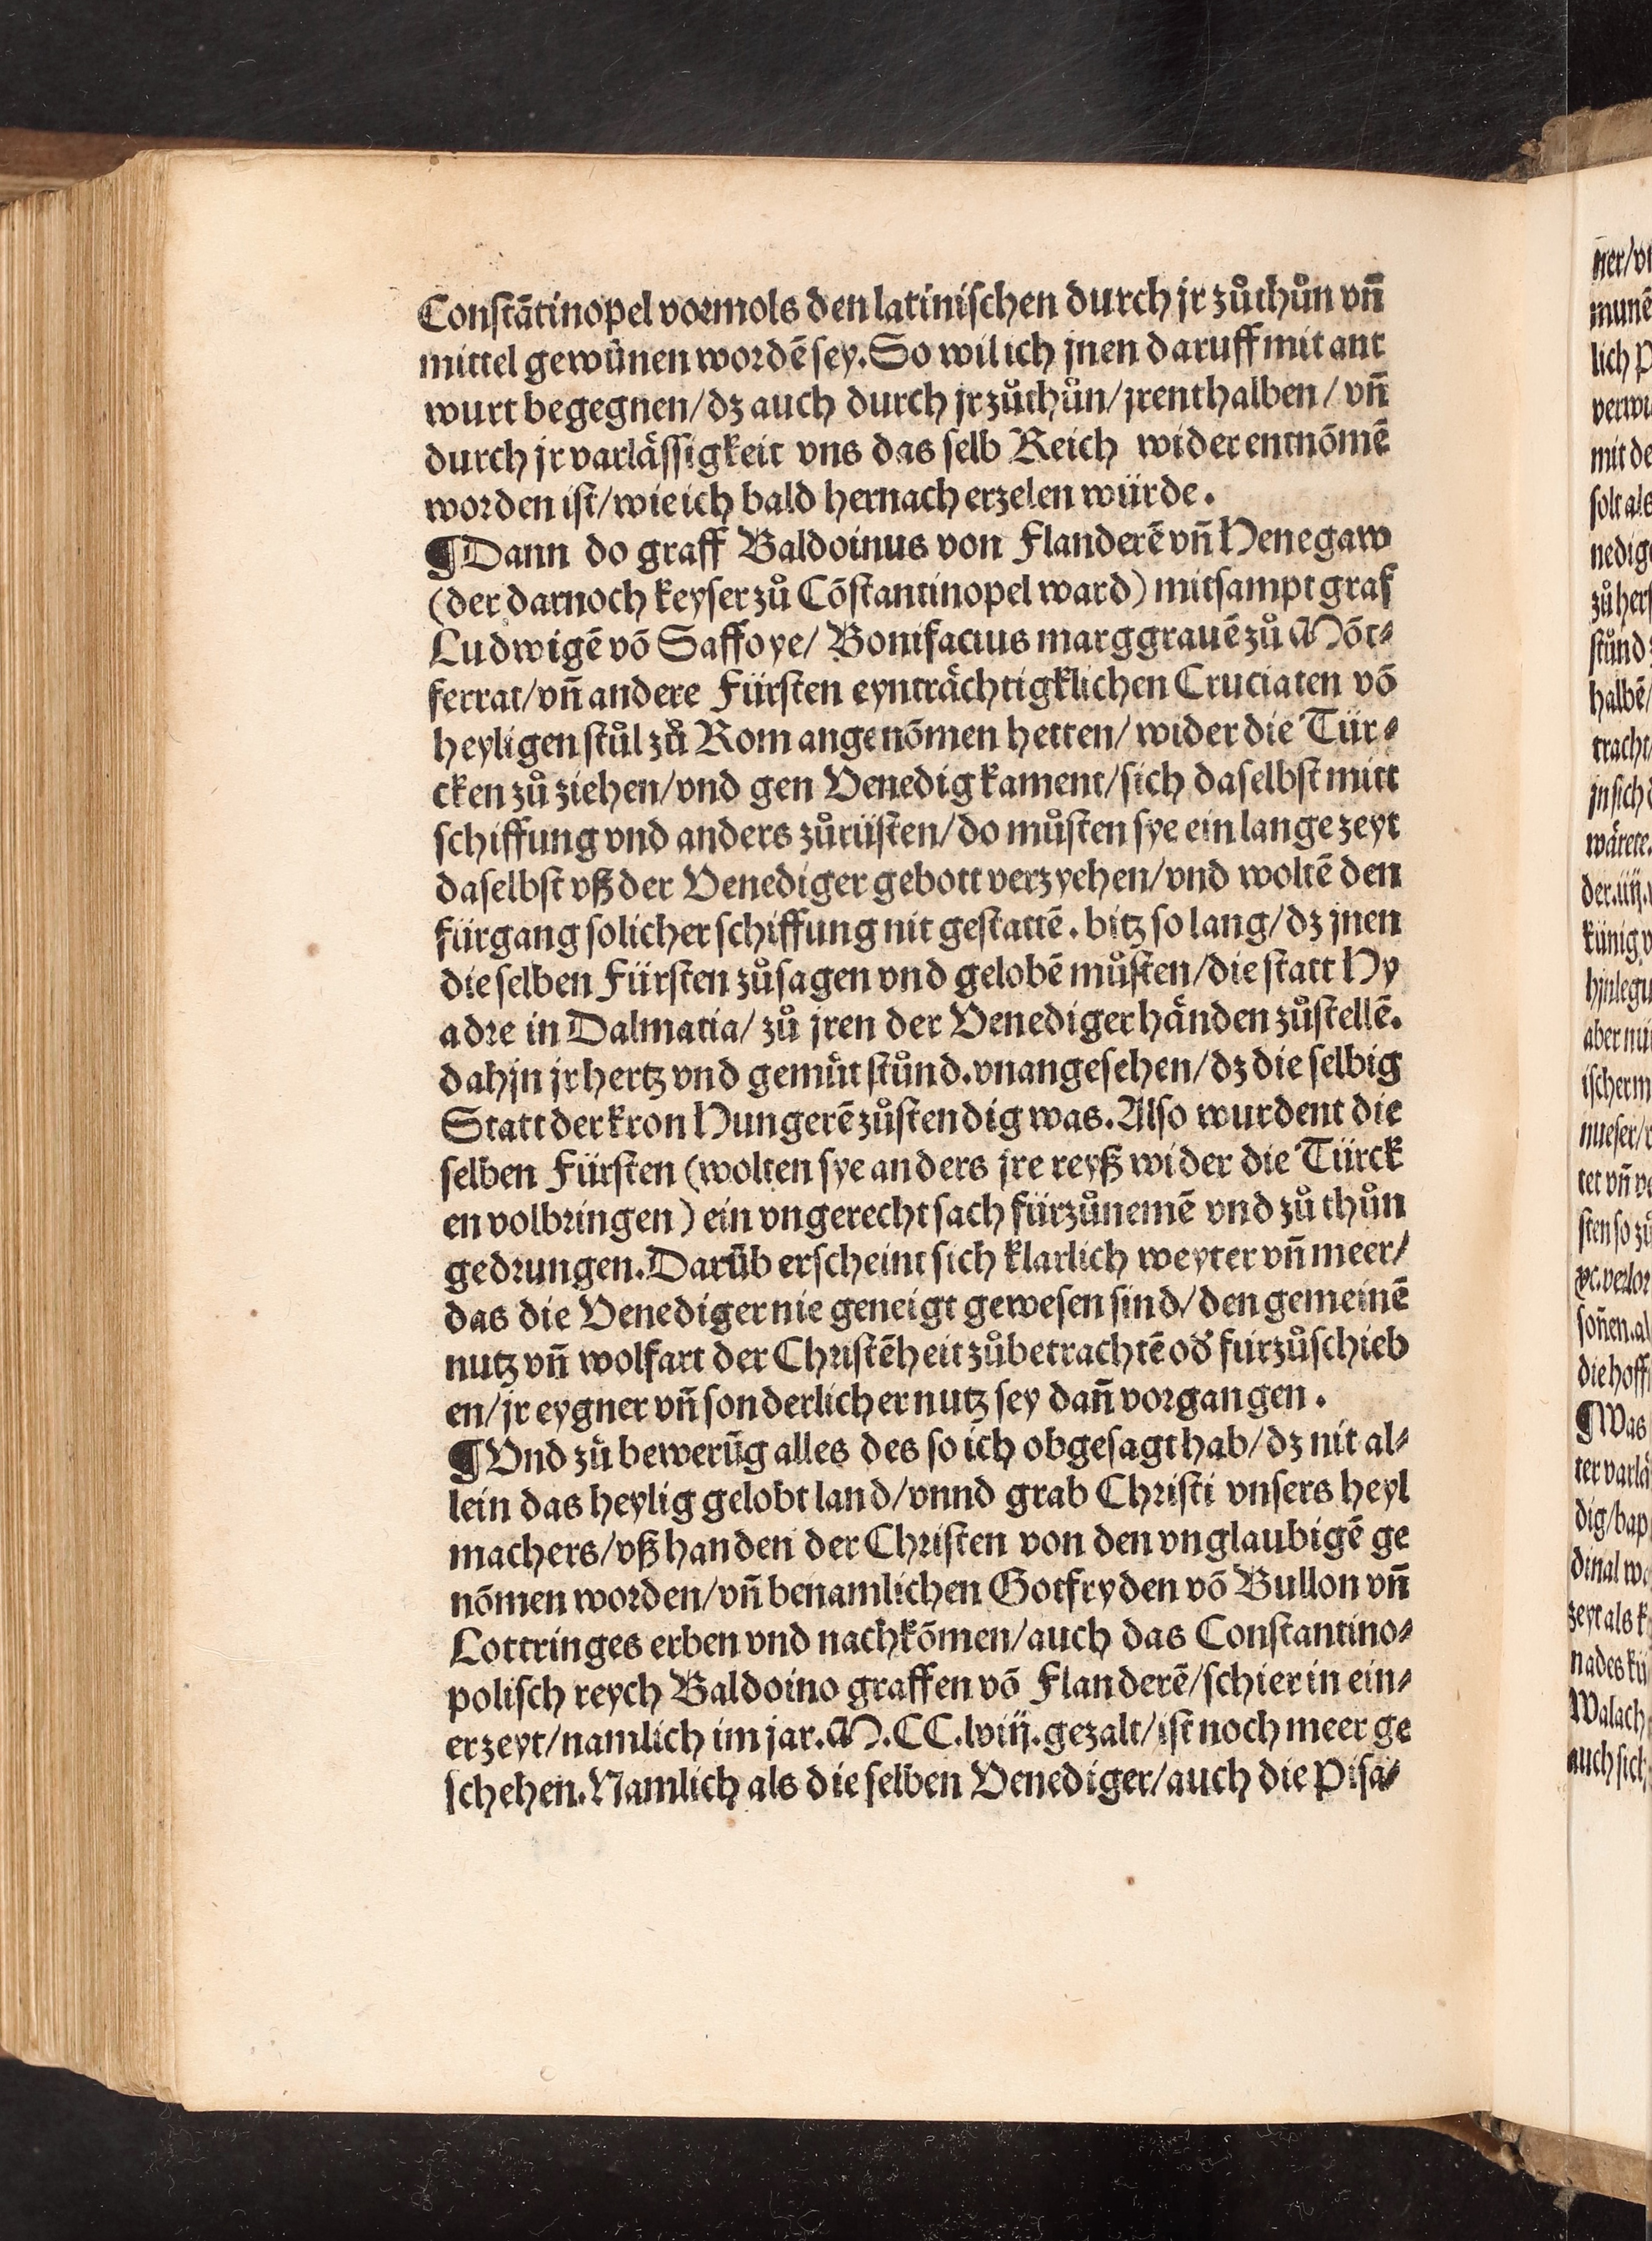 Conſtātinopel vormols den latiniſchen durch jr zůthůn vñ
mittel gewūnen wordē ſey. So wil ich jnen daruff mit ant
wurt begegnen/ dz auch durch jr zůthůn/ jrenthalben/ vñ
durch jr varläſſigkeit vns das ſelb Reich wider entnōmē
worden iſt/ wie ich bald hernach erzelen würde.
¶Dann do graff Baldoinus von Flanderē vñ Henegaw
(der darnoch keyſer zů Cōſtantinopel ward) mitſampt graf
Ludwigē vō Saffoye/ Bonifacius marggrauē zů Mōt⸗
ferrat/ vñ andere Fürſten eynträchtigklichen Cruciaten vō
heyligen ſtůl zů Rom angenōmen hetten/ wider die Tür⸗
cken zů ziehen/ vnd gen Venedig kament/ ſich daſelbſt mitt
ſchiffung vnd anders zůrüſten/ do můſten ſye ein lange zeyt
daſelbſt vß der Venediger gebott verzyehen/ vnd woltē den
fürgang ſolicher ſchiffung nit geſtattē. bitz ſo lang/ dz jnen
die ſelben Fürſten zůſagen vnd gelobē můſten/ die ſtatt Hy
adre in Dalmatia/ zů jren der Venediger händen zůſtellē.
dahjn jr hertz vnd gemüt ſtůnd. vnangeſehen/ dz die ſelbig
Statt der kron Hungerē zůſtendig was. Alſo wurdent die
ſelben Fürſten (wolten ſye anders jre reyß wider die Türck
en volbringen) ein vngerecht ſach fürzůnemē vnd zů thůn
gedrungen. Darūb erſcheint ſich klarlich weyter vñ meer/
das die Venediger nie geneigt geweſen ſind/ den gemeinē
nutz vñ wolfart der Chriſtēheit zůbetrachtē od̕ fürzůſchieb
en/ jr eygner vñ ſonderlicher nutz ſey dañ vorgangen.
¶Vnd zů bewerūg alles des ſo ich obgeſagt hab/ dz nit al⸗
lein das heylig gelobt land/ vnnd grab Chriſti vnſers heyl
machers/ vß handen der Chriſten von den vnglaubigē ge
nōmen worden/ vñ benamlichen Gotfryden vō Bullon vñ
Lottringes erben vnd nachkōmen/ auch das Conſtantino⸗
poliſch reych Baldoino graffen vō Flanderē/ ſchier in ein⸗
er zeyt/ namlich im jar. M.CC.lviij. gezalt/ iſt noch meer ge
ſchehen. Namlich als die ſelben Venediger/ auch die Piſa⸗